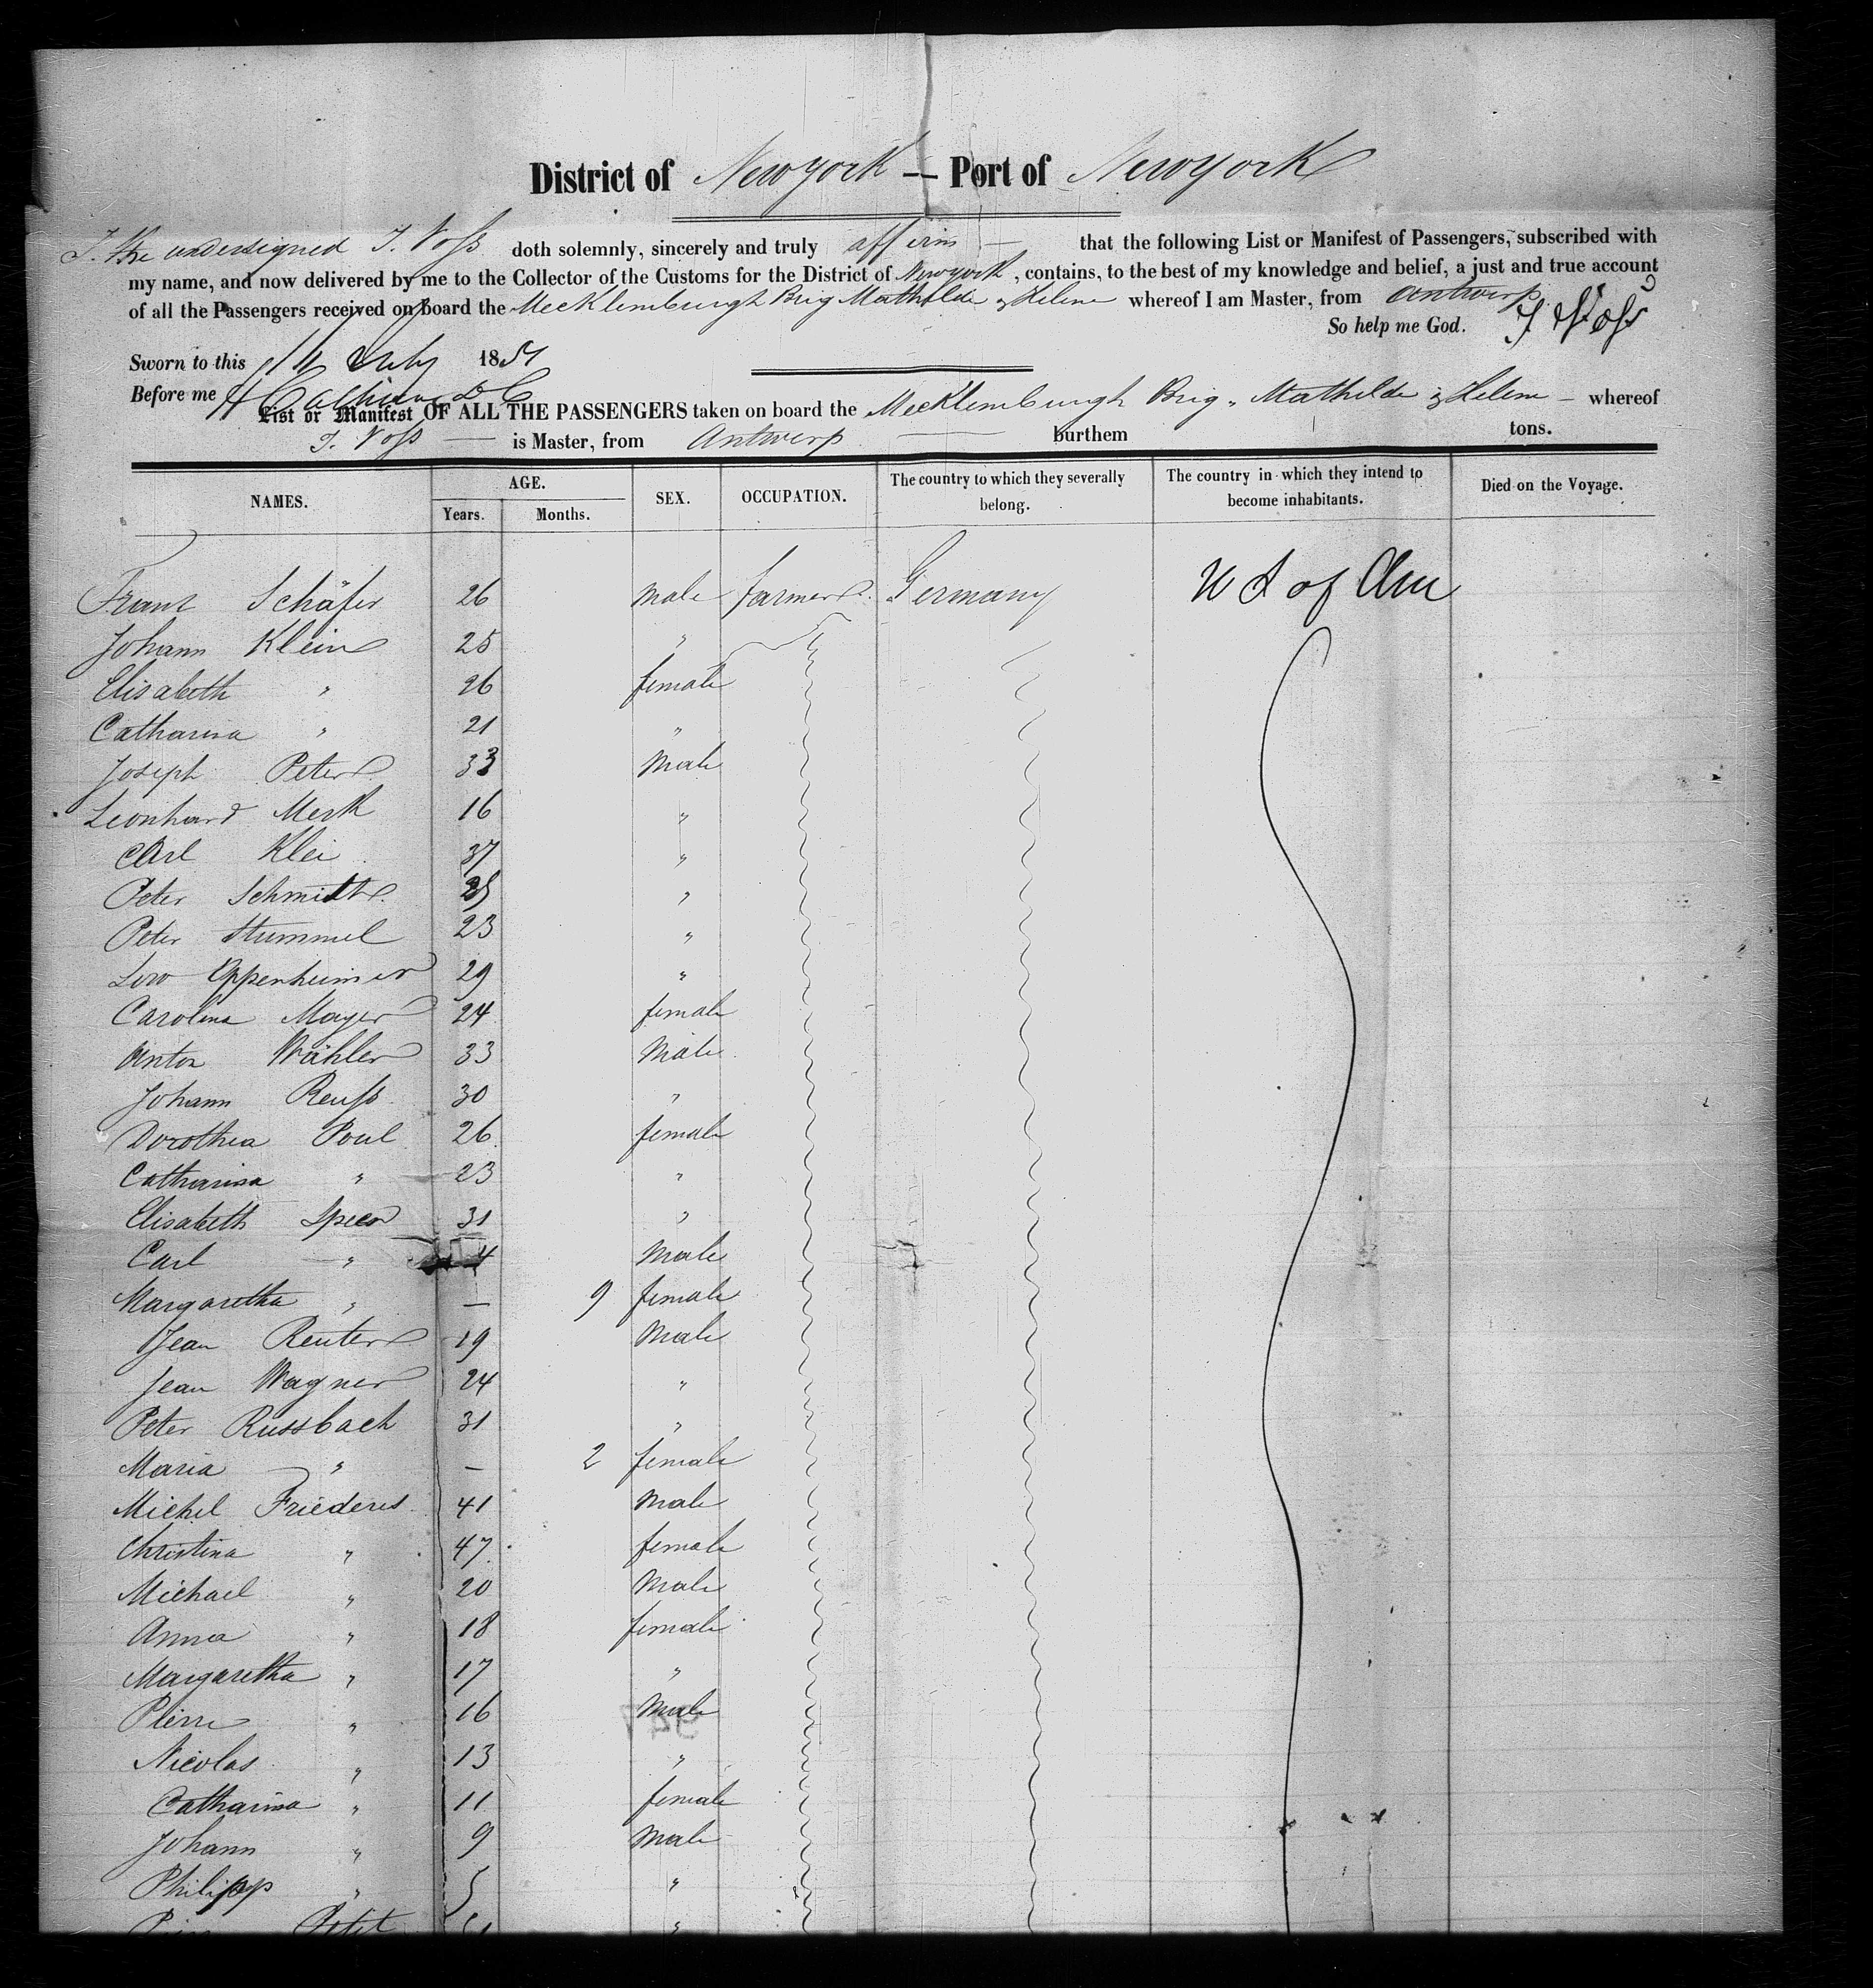 District of New york — Port of New york
I. the undersigned J. Voß doth solemnly, sincerely and truly affirm — that the following List or Manifest of Passengers, subscribed with
my name, and now delivered by me to the Collector of the Customs for the District of New york, contains, to the best of my knowledge and belief, a just and true account
of all the Passengers received on board the Mecklenburgh Brig Mathilde & Helene whereof I am Master, from Antwerp
So help me God. J Voss
Sworn to this 11 July 1851
Before me
List or Manifest OF ALL THE PASSENGERS taken on board the Mecklemburgh Brig. Mathilde & Helene — whereof
J. Voß — is Master, from Antwerp — burthem tons.
NAMES. AGE. Years. Months. SEX. OCCUPATION. The country to which they severally belong. The country in which they intend to become inhabitants. Died on the Voyage.
Franz Schäfer 26 male farmers. Germany U S of Am
Johann Klein 25 "
Elisabeth " 26 female
Catharina " 21 "
Joseph Peters 33 Male
Leonhard Merk 16 "
Carl Klei 37 "
Peter Schmidt "
Peter Stummel 23 "
Low Oppenheimer 29 "
Carolina Mayer 24 female
Anton Wähler 33 Male
Johann Reuß 30 "
Dorothea Poul 26 female
Catharina " 23 "
Elisabeth Speer 31 "
Carl " 4 Male
Margaretha " — 9 female
Jean Reuter 19 Male
Jean Wagner 24 "
Peter Russbach 31 "
Maria " — 2 female
Michel Friederes 41 Male
Christina " 47 female
Michael " 20 Male
Anna " 18 female
Margaretha " 17 "
Pierre " 16 Male
Nicolas " 13 "
Catharina " 11 female
Johann " 9 Male
Philipp " 5 "
Petit "